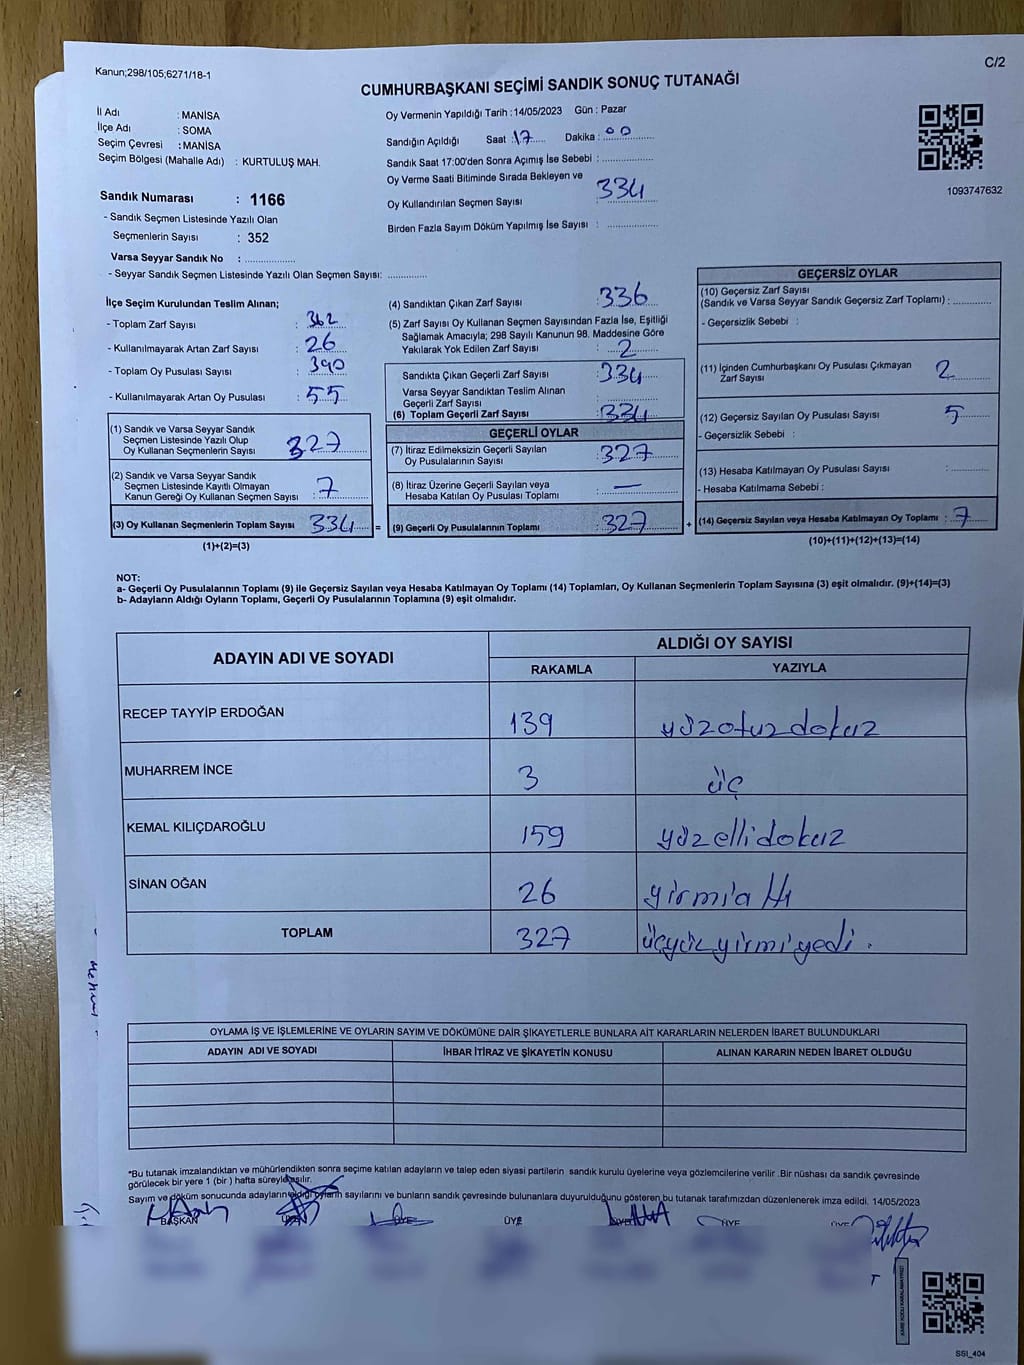 Kanun;298/105;6271/18-1
C/2
CUMHURBAŞKANI SEÇİMİ SANDIK SONUÇ TUTANAĞI
İl Adı : MANİSA
İlçe Adı : SOMA
Seçim Çevresi : MANİSA
Seçim Bölgesi (Mahalle Adı) : KURTULUŞ MAH.
Sandık Numarası : 1166
- Sandık Seçmen Listesinde Yazılı Olan
Seçmenlerin Sayısı : 352
Varsa Seyyar Sandık No :
- Seyyar Sandık Seçmen Listesinde Yazılı Olan Seçmen Sayısı:
Oy Vermenin Yapıldığı Tarih :14/05/2023 Gün : Pazar
Sandığın Açıldığı Saat :17 Dakika : 00
Sandık Saat 17:00'den Sonra Açımış İse Sebebi :
Oy Verme Saati Bitiminde Sırada Bekleyen ve
Oy Kullandırılan Seçmen Sayısı 334
Birden Fazla Sayım Döküm Yapılmış İse Sayısı :
1093747632
İlçe Seçim Kurulundan Teslim Alınan;
- Toplam Zarf Sayısı : 362
- Kullanılmayarak Artan Zarf Sayısı : 26
- Toplam Oy Pusulası Sayısı : 390
- Kullanılmayarak Artan Oy Pusulası : 55
(1) Sandık ve Varsa Seyyar Sandık
Seçmen Listesinde Yazılı Olup
Oy Kullanan Seçmenlerin Sayısı : 327
(2) Sandık ve Varsa Seyyar Sandık
Seçmen Listesinde Kayıtlı Olmayan
Kanun Gereği Oy Kullanan Seçmen Sayısı : 7
(3) Oy Kullanan Seçmenlerin Toplam Sayısı 334 =
(1)+(2)=(3)
(4) Sandıktan Çıkan Zarf Sayısı : 336
(5) Zarf Sayısı Oy Kullanan Seçmen Sayısından Fazla İse, Eşitliği
Sağlamak Amacıyla; 298 Sayılı Kanunun 98. Maddesine Göre
Yakılarak Yok Edilen Zarf Sayısı : 2
Sandıkta Çıkan Geçerli Zarf Sayısı : 334
Varsa Seyyar Sandıktan Teslim Alınan
Geçerli Zarf Sayısı :
(6) Toplam Geçerli Zarf Sayısı : 334
GEÇERLİ OYLAR
(7) İtiraz Edilmeksizin Geçerli Sayılan
Oy Pusulalarının Sayısı : 327
(8) İtiraz Üzerine Geçerli Sayılan veya
Hesaba Katılan Oy Pusulası Toplamı : —
(9) Geçerli Oy Pusulalarının Toplamı : 327 +
GEÇERSİZ OYLAR
(10) Geçersiz Zarf Sayısı
(Sandık ve Varsa Seyyar Sandık Geçersiz Zarf Toplamı) :
- Geçersizlik Sebebi :
(11) İçinden Cumhurbaşkanı Oy Pusulası Çıkmayan
Zarf Sayısı 2
(12) Geçersiz Sayılan Oy Pusulası Sayısı 5
- Geçersizlik Sebebi :
(13) Hesaba Katılmayan Oy Pusulası Sayısı :
- Hesaba Katılmama Sebebi :
(14) Geçersiz Sayılan veya Hesaba Katılmayan Oy Toplamı : 7
(10)+(11)+(12)+(13)=(14)
NOT:
a- Geçerli Oy Pusulalarının Toplamı (9) ile Geçersiz Sayılan veya Hesaba Katılmayan Oy Toplamı (14) Toplamları, Oy Kullanan Seçmenlerin Toplam Sayısına (3) eşit olmalıdır. (9)+(14)=(3)
b- Adayların Aldığı Oyların Toplamı, Geçerli Oy Pusulalarının Toplamına (9) eşit olmalıdır.
ADAYIN ADI VE SOYADI
ALDIĞI OY SAYISI
RAKAMLA YAZIYLA
RECEP TAYYİP ERDOĞAN 139 yüzotuzdokuz
MUHARREM İNCE 3 üç
KEMAL KILIÇDAROĞLU 159 yüzellidokuz
SİNAN OĞAN 26 yirmialtı
TOPLAM 327 üçyüzyirmiyedi.
OYLAMA İŞ VE İŞLEMLERİNE VE OYLARIN SAYIM VE DÖKÜMÜNE DAİR ŞİKAYETLERLE BUNLARA AİT KARARLARIN NELERDEN İBARET BULUNDUKLARI
ADAYIN ADI VE SOYADI İHBAR İTİRAZ VE ŞİKAYETİN KONUSU ALINAN KARARIN NEDEN İBARET OLDUĞU
*Bu tutanak imzalandıktan ve mühürlendikten sonra seçime katılan adayların ve talep eden siyasi partilerin sandık kurulu üyelerine veya gözlemcilerine verilir .Bir nüshası da sandık çevresinde
görülecek bir yere 1 (bir ) hafta süreyle asılır.
Sayım ve döküm sonucunda adayların aldığı oyların sayılarını ve bunların sandık çevresinde bulunanlara duyurulduğunu gösteren bu tutanak tarafımızdan düzenlenerek imza edildi. 14/05/2023
BAŞKAN ÜYE ÜYE ÜYE ÜYE ÜYE ÜYE
SSI_404